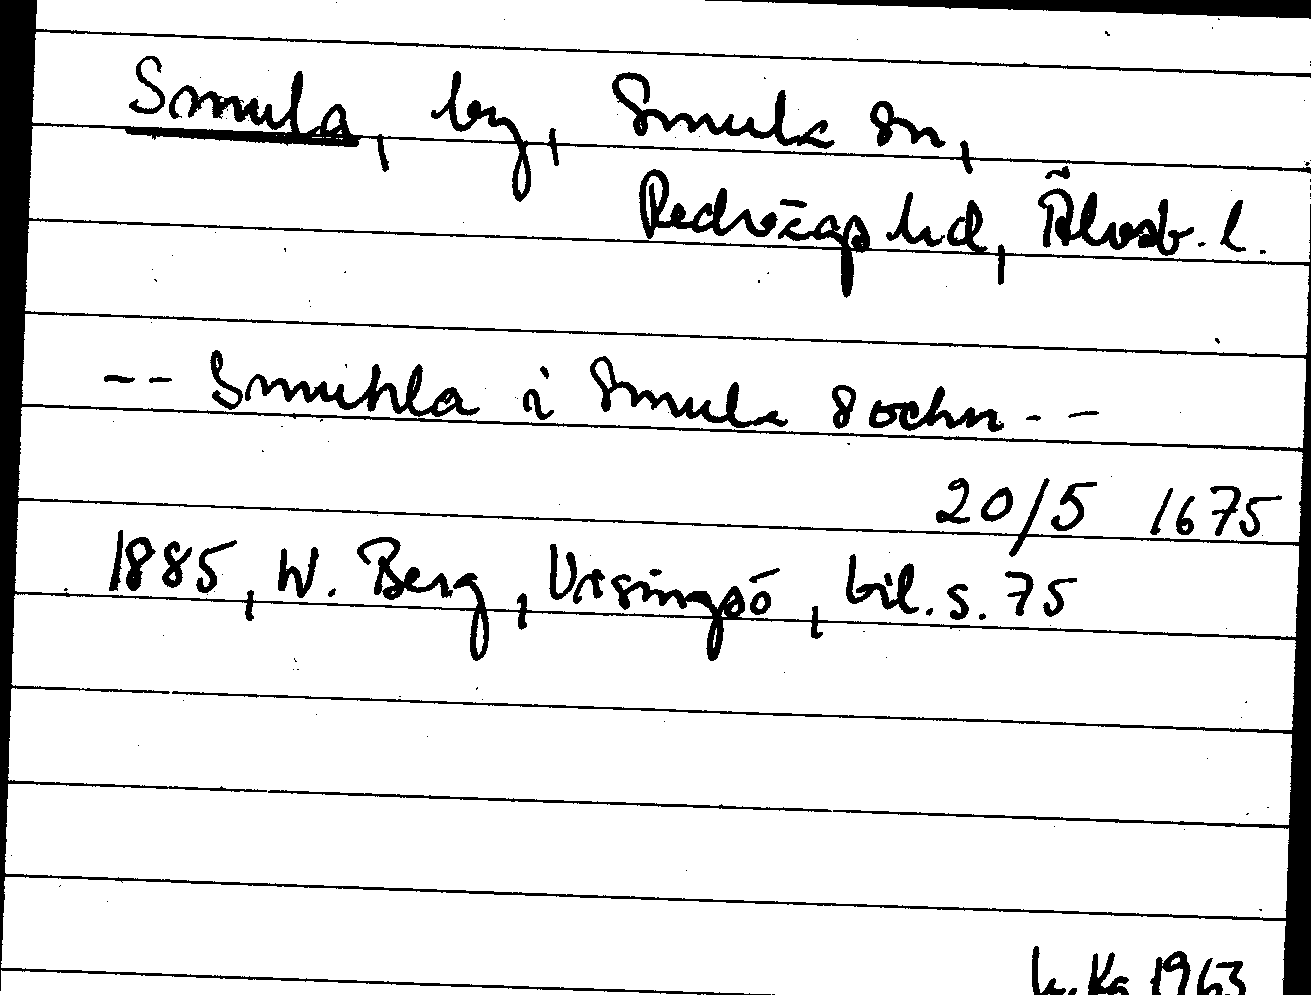 Smula, by, Smula sn,
Redvägs hd, Älvsb. l.
-- Smuhla i Smula sochn --
20/5 1675
1885, W. Berg, Visingsö, bil. s. 75
1963